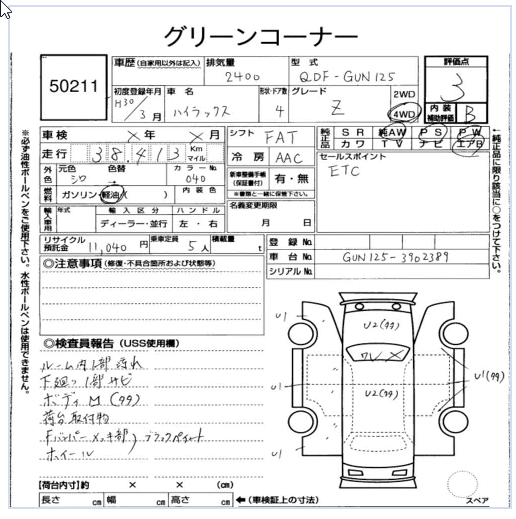 グリーンコーナー
50211
車歴 (自家用以外は記入)
排気量
2400
型式
QDF-GUN125
評価点
3
初度登録年月
H30/3月
車名
ハイラックス
形状・ドア数
4
グレード
Z
2WD
4WD
内装
補助評価
B
車検 ×年 ×月
シフト FAT
純正品
SR 純AW PS PW
カワ TV ナビ エアB
走行 38,413 Km マイル
冷房 AAC
セールスポイント
ETC
外色
元色
シロ
色替
カラーNo.
040
新車整備手帳
(保証書付)
有・無
※書類と一緒に保管下さい。
燃料
ガソリン・軽油( )
内装色
名義変更期限
月 日
輸入車用
年式
輸入区分
ディーラー・並行
ハンドル
左・右
リサイクル
預託金
11,040円
乗車定員
5人
積載量
t
登録No.
車台No.
GUN125-3902389
シリアルNo.
◎注意事項(修復・不具合箇所および状態等)
◎検査員報告 (USS使用欄)
ルーム内1部汚れ
下廻り1部サビ
ボディM(タタ)
荷台取付物
Fバンパーメッキ部)ブラックペイント
ホイール
U1
U2(タタ)
ワレ×
U2(タタ)
U1
U1(タタ)
U1
スペア
【荷台内寸】約 × × (cm)
長さ cm 幅 cm 高さ cm ←(車検証上の寸法)
※必ず油性ボールペンをご使用下さい。水性ボールペンは使用できません。
←純正品に限り該当に○をつけて下さい。